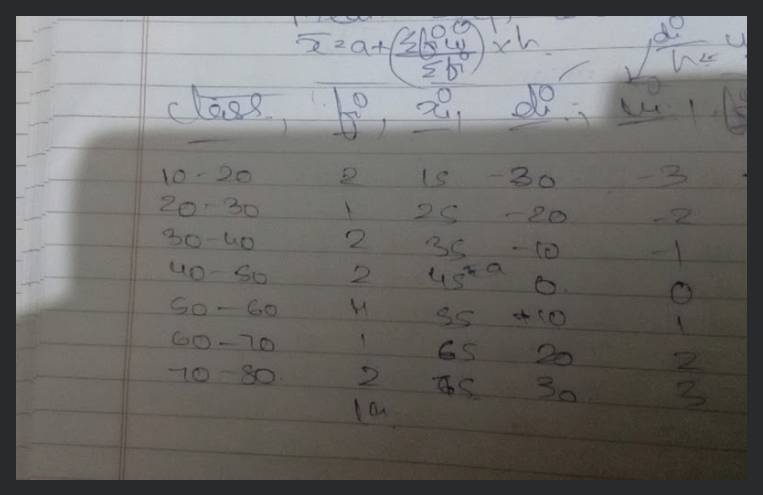 x̄ = a + (Σfiui / Σfi) × h
di / h = u
class, fi, xi, di, ui, f
10-20 2 15 -30 -3
20-30 1 25 -20 -2
30-40 2 35 -10 -1
40-50 2 45=a 0 0
50-60 4 55 +10 1
60-70 1 65 20 2
70-80 2 75 30 3
14